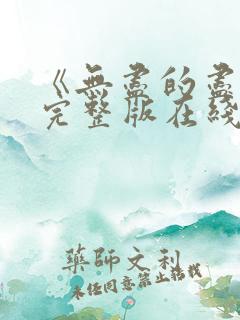 《無盡的盡
完整版在綫
藥師文利
未经同意禁止搭载